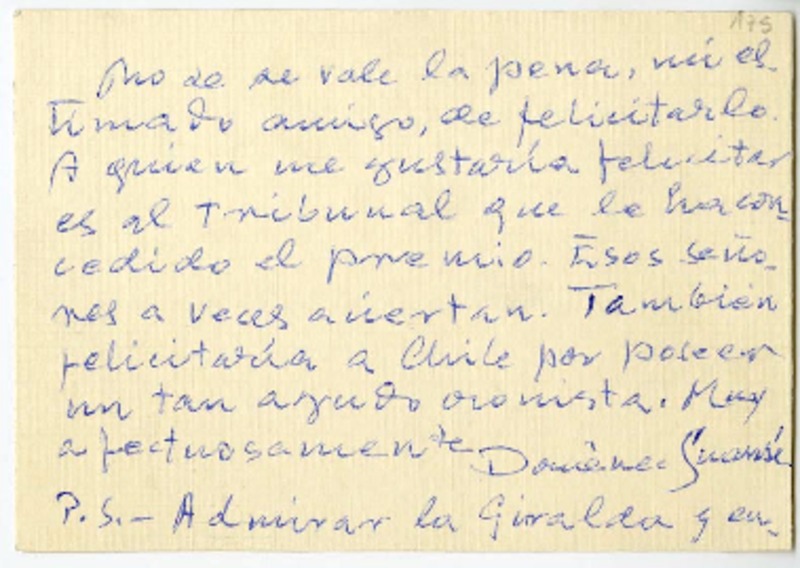 175
No se se vale la pena, mi es-
timado amigo, de felicitarlo.
A quien me gustaría felicitar
es al Tribunal que le ha con-
cedido el premio. Esos seño-
res a veces aciertan. También
felicitaría a Chile por poseer
un tan agudo cronista. Muy
afectuosamente Domènec Guansé
P.S.- Admirar la Giralda y en-